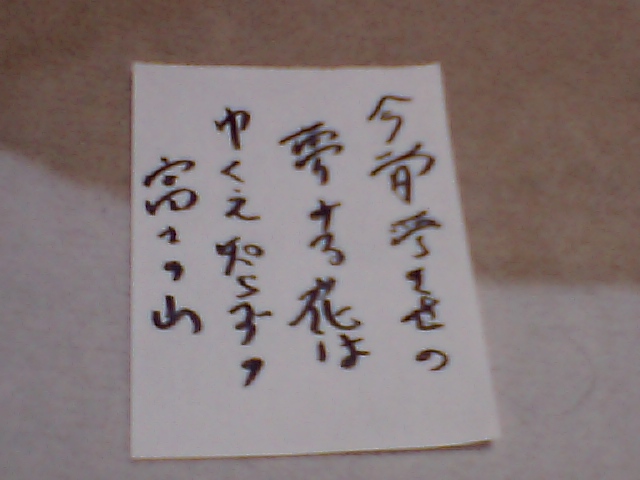 今宵夢ませの
夢する花は
ゆくえ知らずの
富士の山